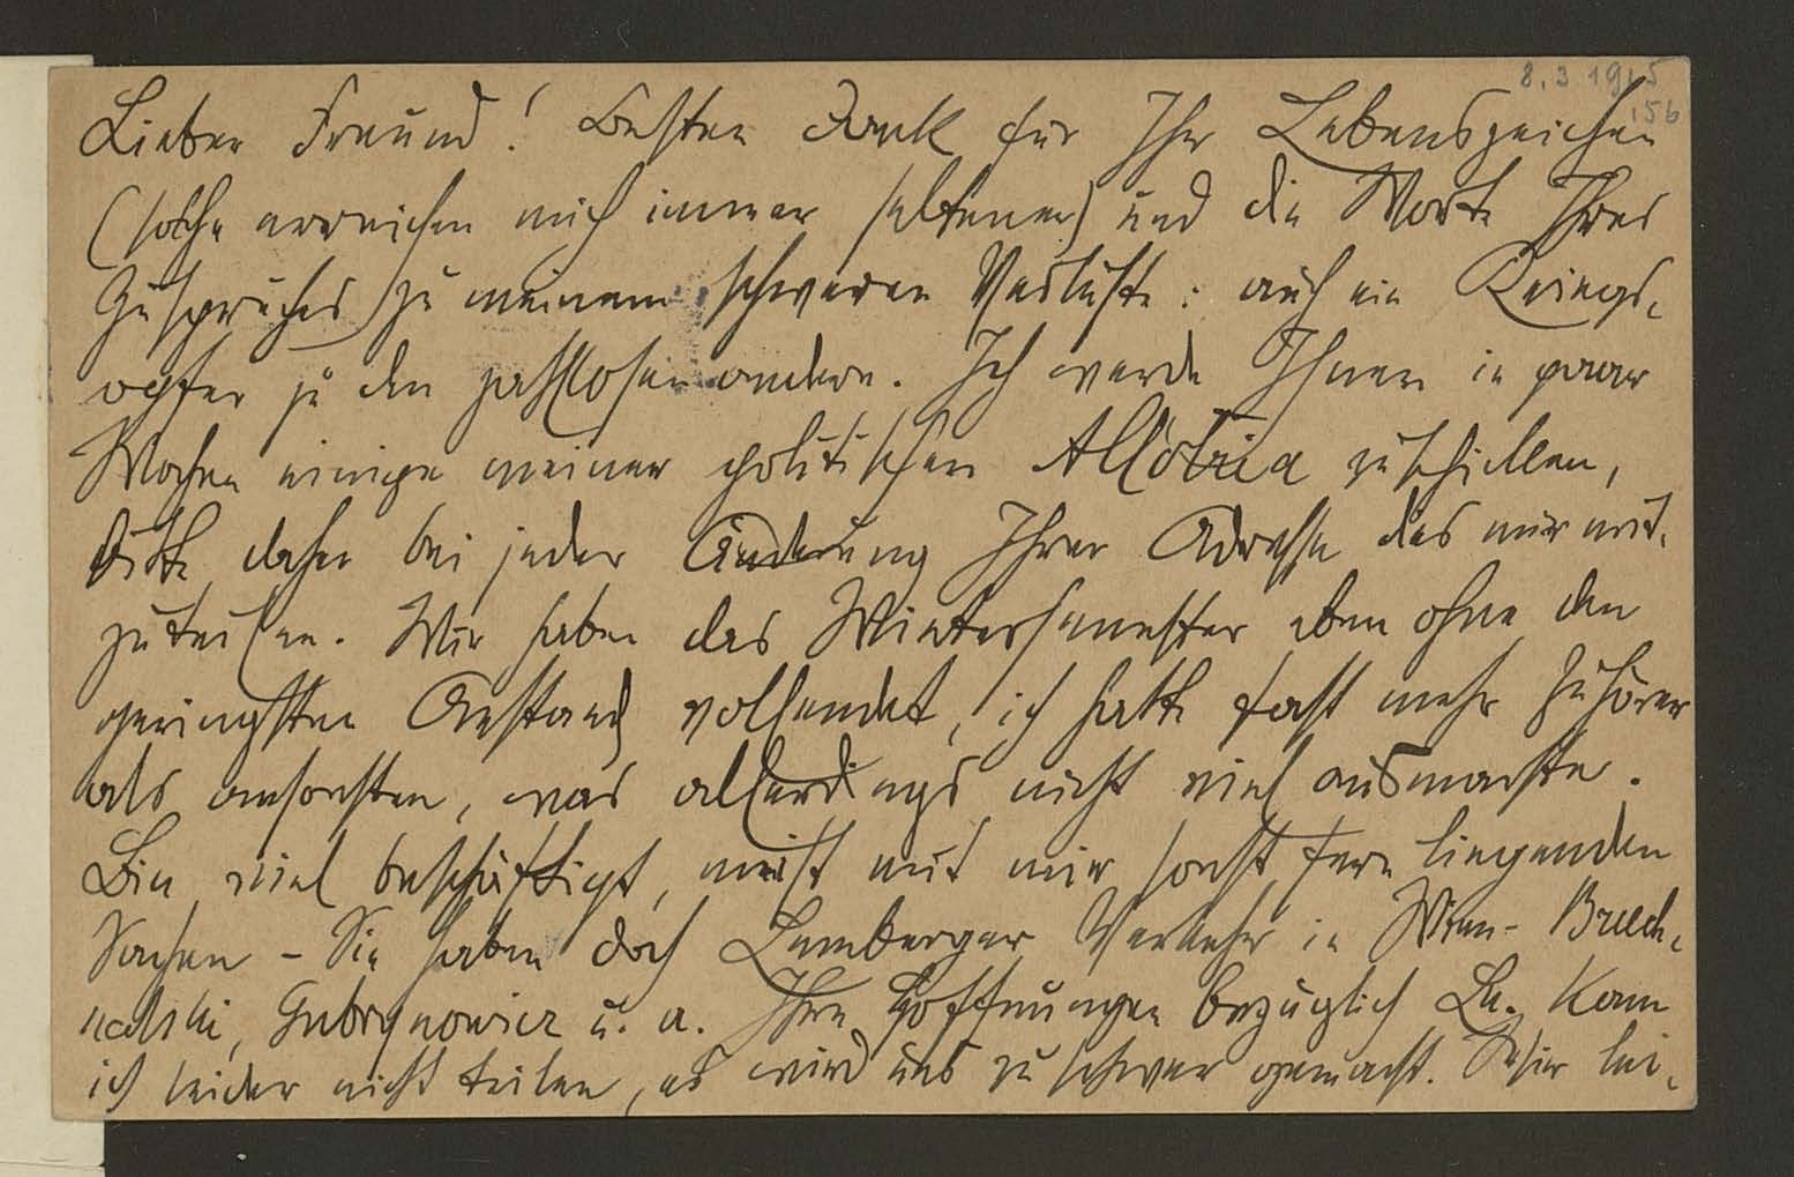 8.3.1915
156
Lieber Freund! Besten Dank für Ihr Lebenszeichen
(solche erreichen mich immer seltener) und die Worte Ihres
Zuspruches zu meinem schweren Verluste: auch ein Kriegs-
opfer zu den zahllosen andern. Ich werde Ihnen in paar
Wochen einige meiner politischen Allotria zuschicken,
bitte daher bei jeder Änderung Ihrer Adresse dies mir mit-
zuteilen. Wir haben das Wintersemester eben ohne den
geringsten Anstand vollendet, ich hatte fast mehr Zuhörer
als ansonsten, was allerdings nicht viel ausmachte.
Bin viel beschäftigt, meist mit mir sonst fern liegenden
Sachen - Sie haben doch Lemberger Verkehr in Wien - Bruch-
nalski, Gubrynowicz u. a. Ihre Hoffnungen bezüglich Le. kann
ich leider nicht teilen, es wird uns zu schwer gemacht. Hier lei-